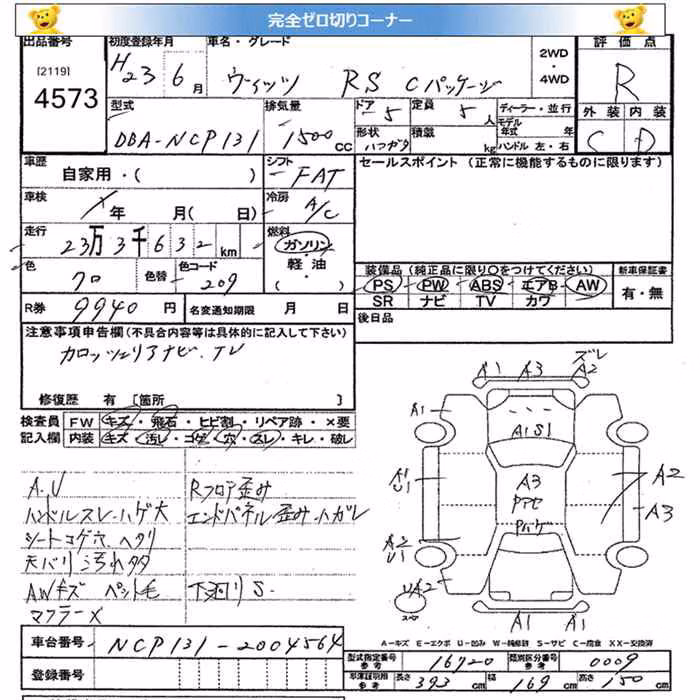 完全ゼロ切りコーナー
出品番号
[2119]
4573
初度登録年月
H23 6月
車名・グレード
ヴィッツ RS Cパッケージ
2WD
・
4WD
評価点
R
外装 内装
C D
型式
DBA-NCP131
排気量
1500cc
ドア 5
形状 ハッチバック
定員 5人
積載 kg
ディーラー・並行
モデル年式 年
ハンドル 左・右
車歴
自家用・( )
シフト
FAT
車検
年 月( 日)
冷房
A/C
走行
23万3千632km
燃料
ガソリン
軽油
( )
色
クロ
色替
色コード
209
R券 9940円
名変通知期限 月 日
セールスポイント(正常に機能するものに限ります)
装備品(純正品に限り○をつけてください)
PS PW ABS エアB AW
SR ナビ TV カワ
新車保証書
有・無
後日品
注意事項申告欄(不具合内容等は具体的に記入して下さい)
カロッツェリアナビ、TV
修復歴 有 [箇所 ]
検査員記入欄
FW キズ・飛石・ヒビ割・リペア跡・×要
内装 キズ・汚レ・コゲ・穴・スレ・キレ・破レ
A.V
ハンドルスレ・ハゲ大
シートコゲ穴 ヘタリ
天バリ汚れ多
AWキズ ペット毛
マフラーX
Rフロア歪み
エンドパネル歪み・ハガレ
下廻りS
A1 A3 ズレ
A2
A1
A1S1
A1
U1
A3
A2
A3
Pハゲ
A2
U1
UA2
スペア
A1 A1
A-キズ E-エクボ U-凹み W-補修跡 S-サビ C-腐食 XX-交換済
車台番号 NCP131-2004564
登録番号
型式指定番号 参考 16720
類別区分番号 参考 0009
車庫証明用 参考 長さ 393cm 幅 169cm 高さ 150cm